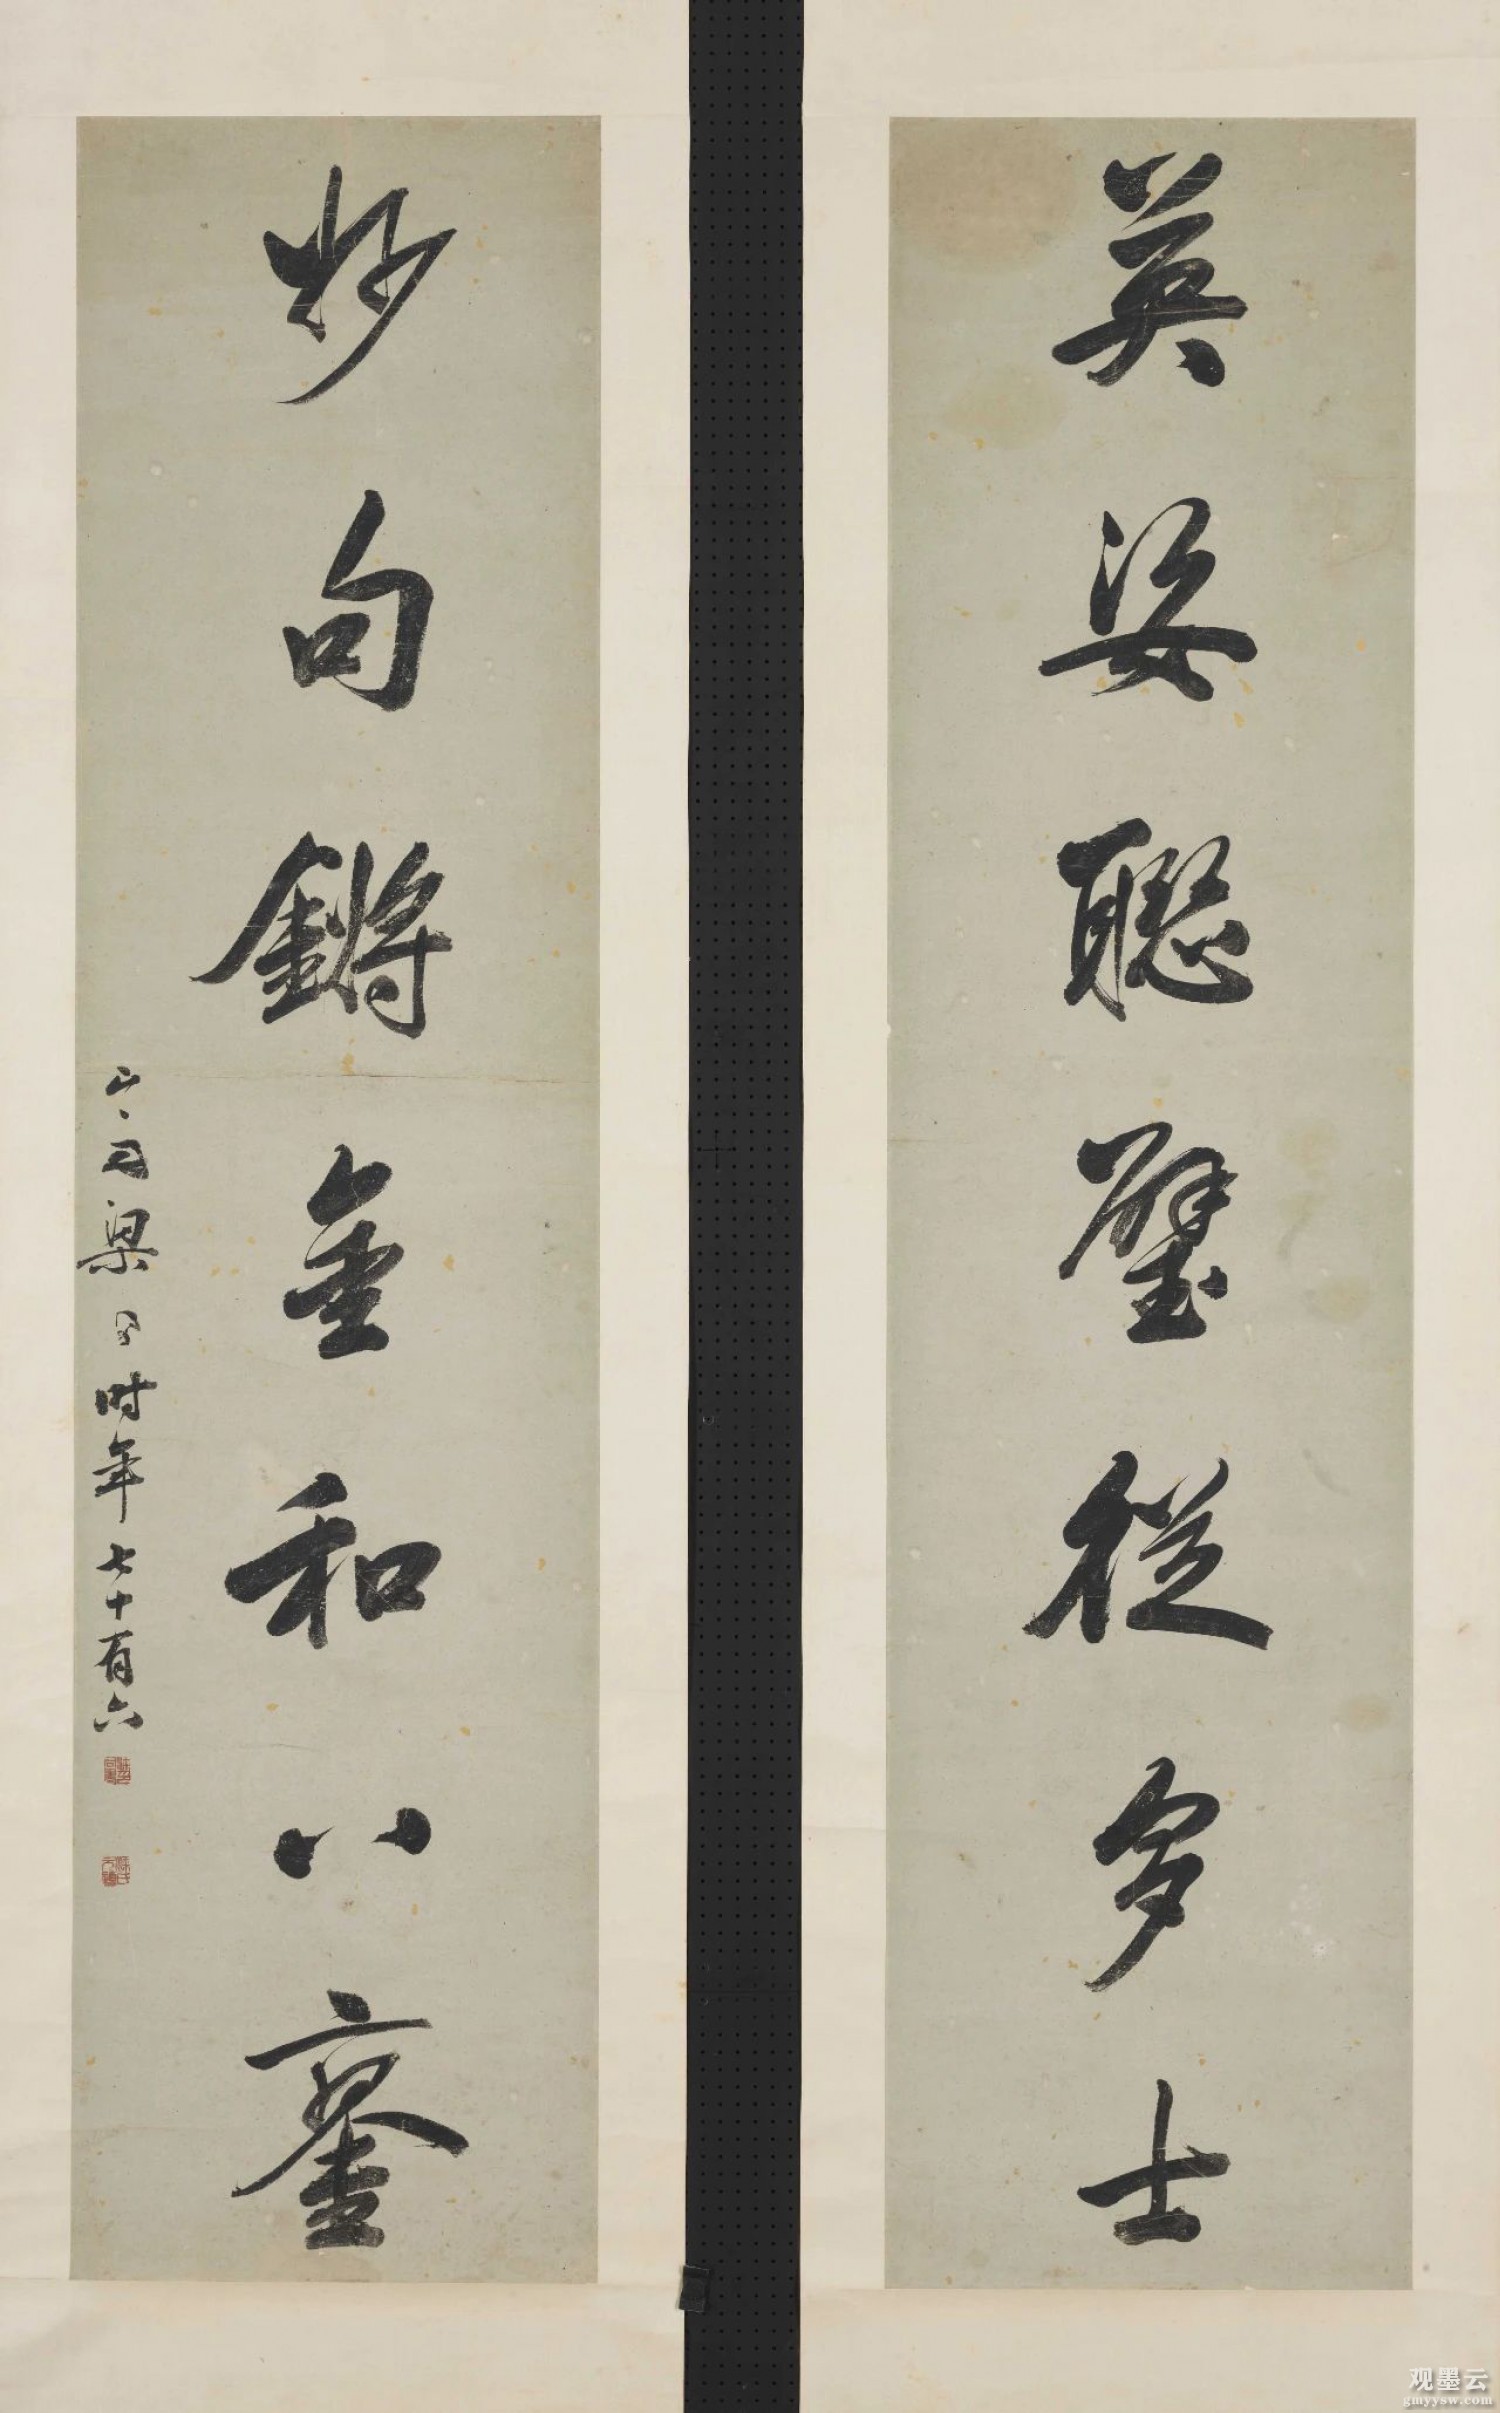 英姿聯璧從多士
妙句鏘金和八鑾
山舟梁同書時年七十有六
观墨云
gmyysw.com